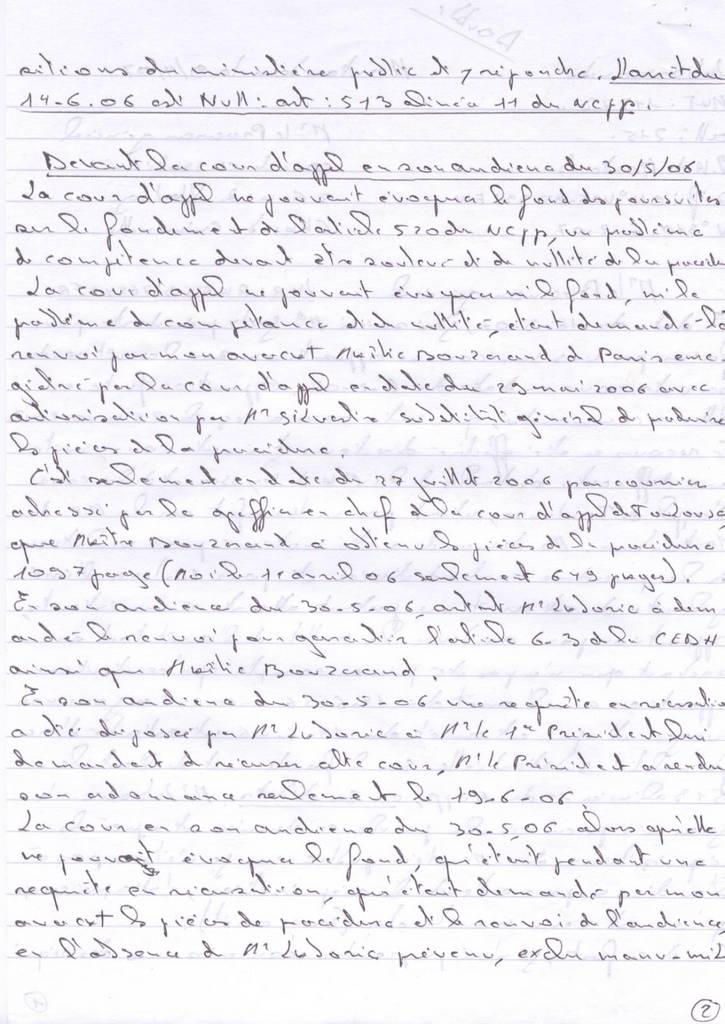 sitions du ministère public et y répondre. L'arrêt du
14-6.06 est Null : art : 513 alinéa 11 du NCPP.
Devant la cour d'appel en son audience du 30/5/06
La cour d'appel ne pouvant évoquer le fond des poursuites
sur le fondement de l'article 520 du NCPP, un problème
de compétence devant être soulevé et de nullité de la procédu
La cour d'appel ne pouvant évoquer ni le fond, ni le
problème de compétance et de nullité, étant demandé le
renvoi par mon avocat Maître Bouzerand de Paris enre
gistré par la cour d'appel en date du 29 mai 2006 avec
autorisation par Mr Silvestre substitut général de produire
les pièces de la procédure.
C'est seulement en date du 27 juillet 2006 par courrier
adressé par le greffier en chef de la cour d'appel de Toulouse
que Maître Bouzerand a obtenu les pièces de la procédure
1097 page (Moi le 11 avril 06 seulement 649 pages).
En son audience du 30-5-06, autant Mr Ludovic a dem
andé le renvoi pour garantir l'article 6-3 de la CEDH
ainsi que Maître Bouzerand.
En son audience du 30-5-06 une requête en récusatio
a été déposée par Mr Ludovic à Mr le 1er Président lui
demandant de récuser cette cour, Mr le Président a rendu
son ordonnance seulement le 19-6-06.
La cour en son audience du 30.5.06 alors qu'elle
ne pouvait évoquer le fond, qu'étant pendant une
requête en récusation, qu'étant demandé par mon
avocat les pièces de procédure et le renvoi de l'audience,
en l'absence de Mr Ludovic prévenu, exclu manu-mil
2